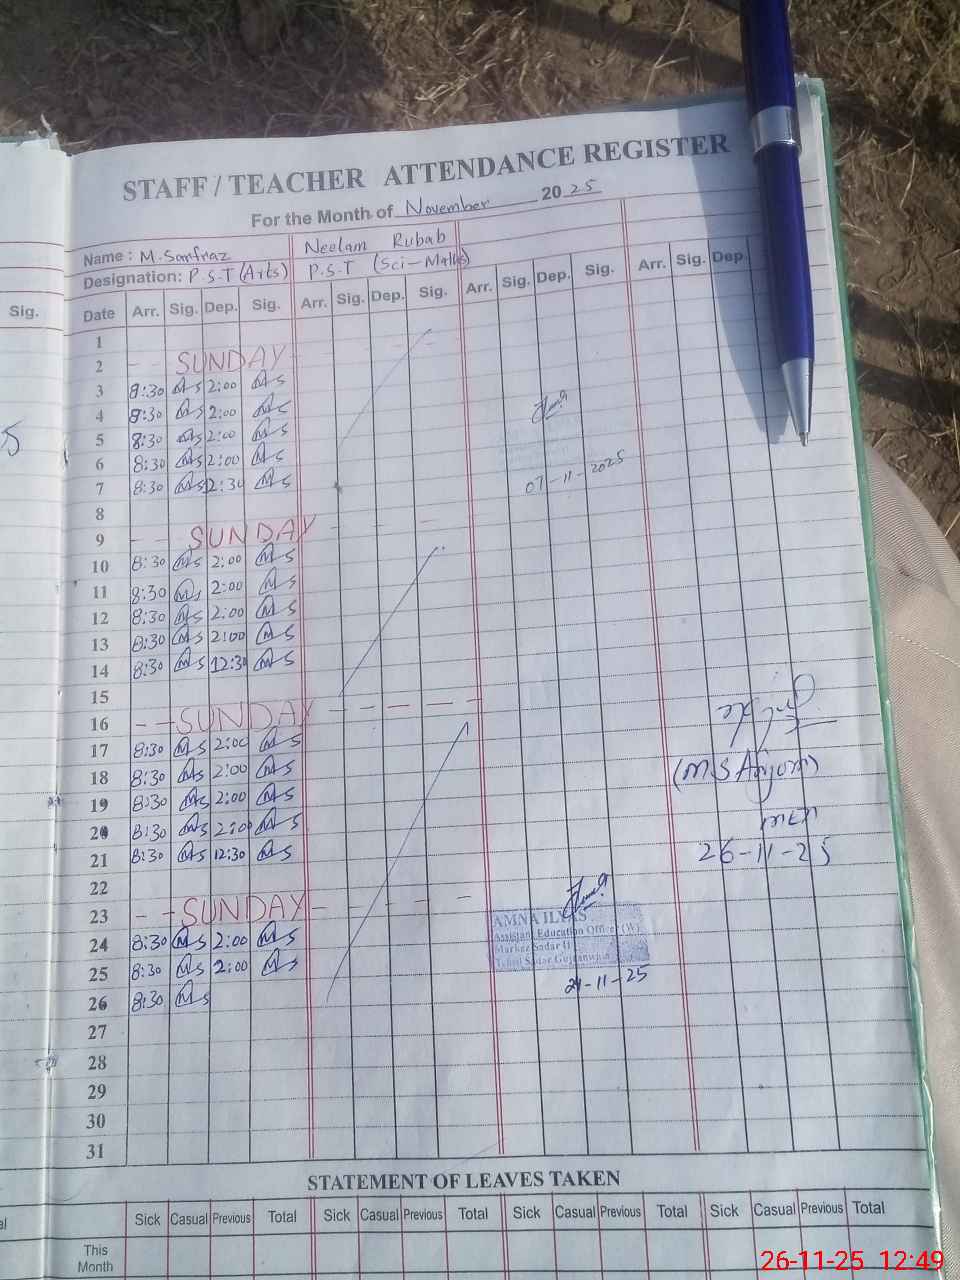 STAFF / TEACHER ATTENDANCE REGISTER
For the Month of November 2025
Name : M. Sarfraz Neelam Rubab
Designation: P.S.T (Arts) P.S.T (Sci-Maths)
Sig. Date Arr. Sig. Dep. Sig. Arr. Sig. Dep. Sig. Arr. Sig. Dep. Sig. Arr. Sig. Dep.
1
2 -- SUNDAY
3 8:30 Ms 2:00 Ms
4 8:30 Ms 2:00 Ms
5 8:30 Ms 2:00 Ms
6 8:30 Ms 2:00 Ms
7 8:30 Ms 2:30 Ms 07-11-2025
8
9 -- SUNDAY
10 8:30 Ms 2:00 Ms
11 8:30 Ms 2:00 Ms
12 8:30 Ms 2:00 Ms
13 8:30 Ms 2:00 Ms
14 8:30 Ms 12:30 Ms
15
16 -- SUNDAY
17 8:30 Ms 2:00 Ms
18 8:30 Ms 2:00 Ms (M S Anjom)
19 8:30 Ms 2:00 Ms
20 8:30 Ms 2:00 Ms
21 8:30 Ms 12:30 Ms 26-11-25
22
23 -- SUNDAY
AMNA ILYAS
Assistant Education Officer (W)
Markez Sadar II
Tehsil Sadar Gujranwala
24 8:30 Ms 2:00 Ms
25 8:30 Ms 2:00 Ms 24-11-25
26 8:30 Ms
27
28
29
30
31
STATEMENT OF LEAVES TAKEN
Sick Casual Previous Total Sick Casual Previous Total Sick Casual Previous Total Sick Casual Previous Total
This
Month
26-11-25 12:49